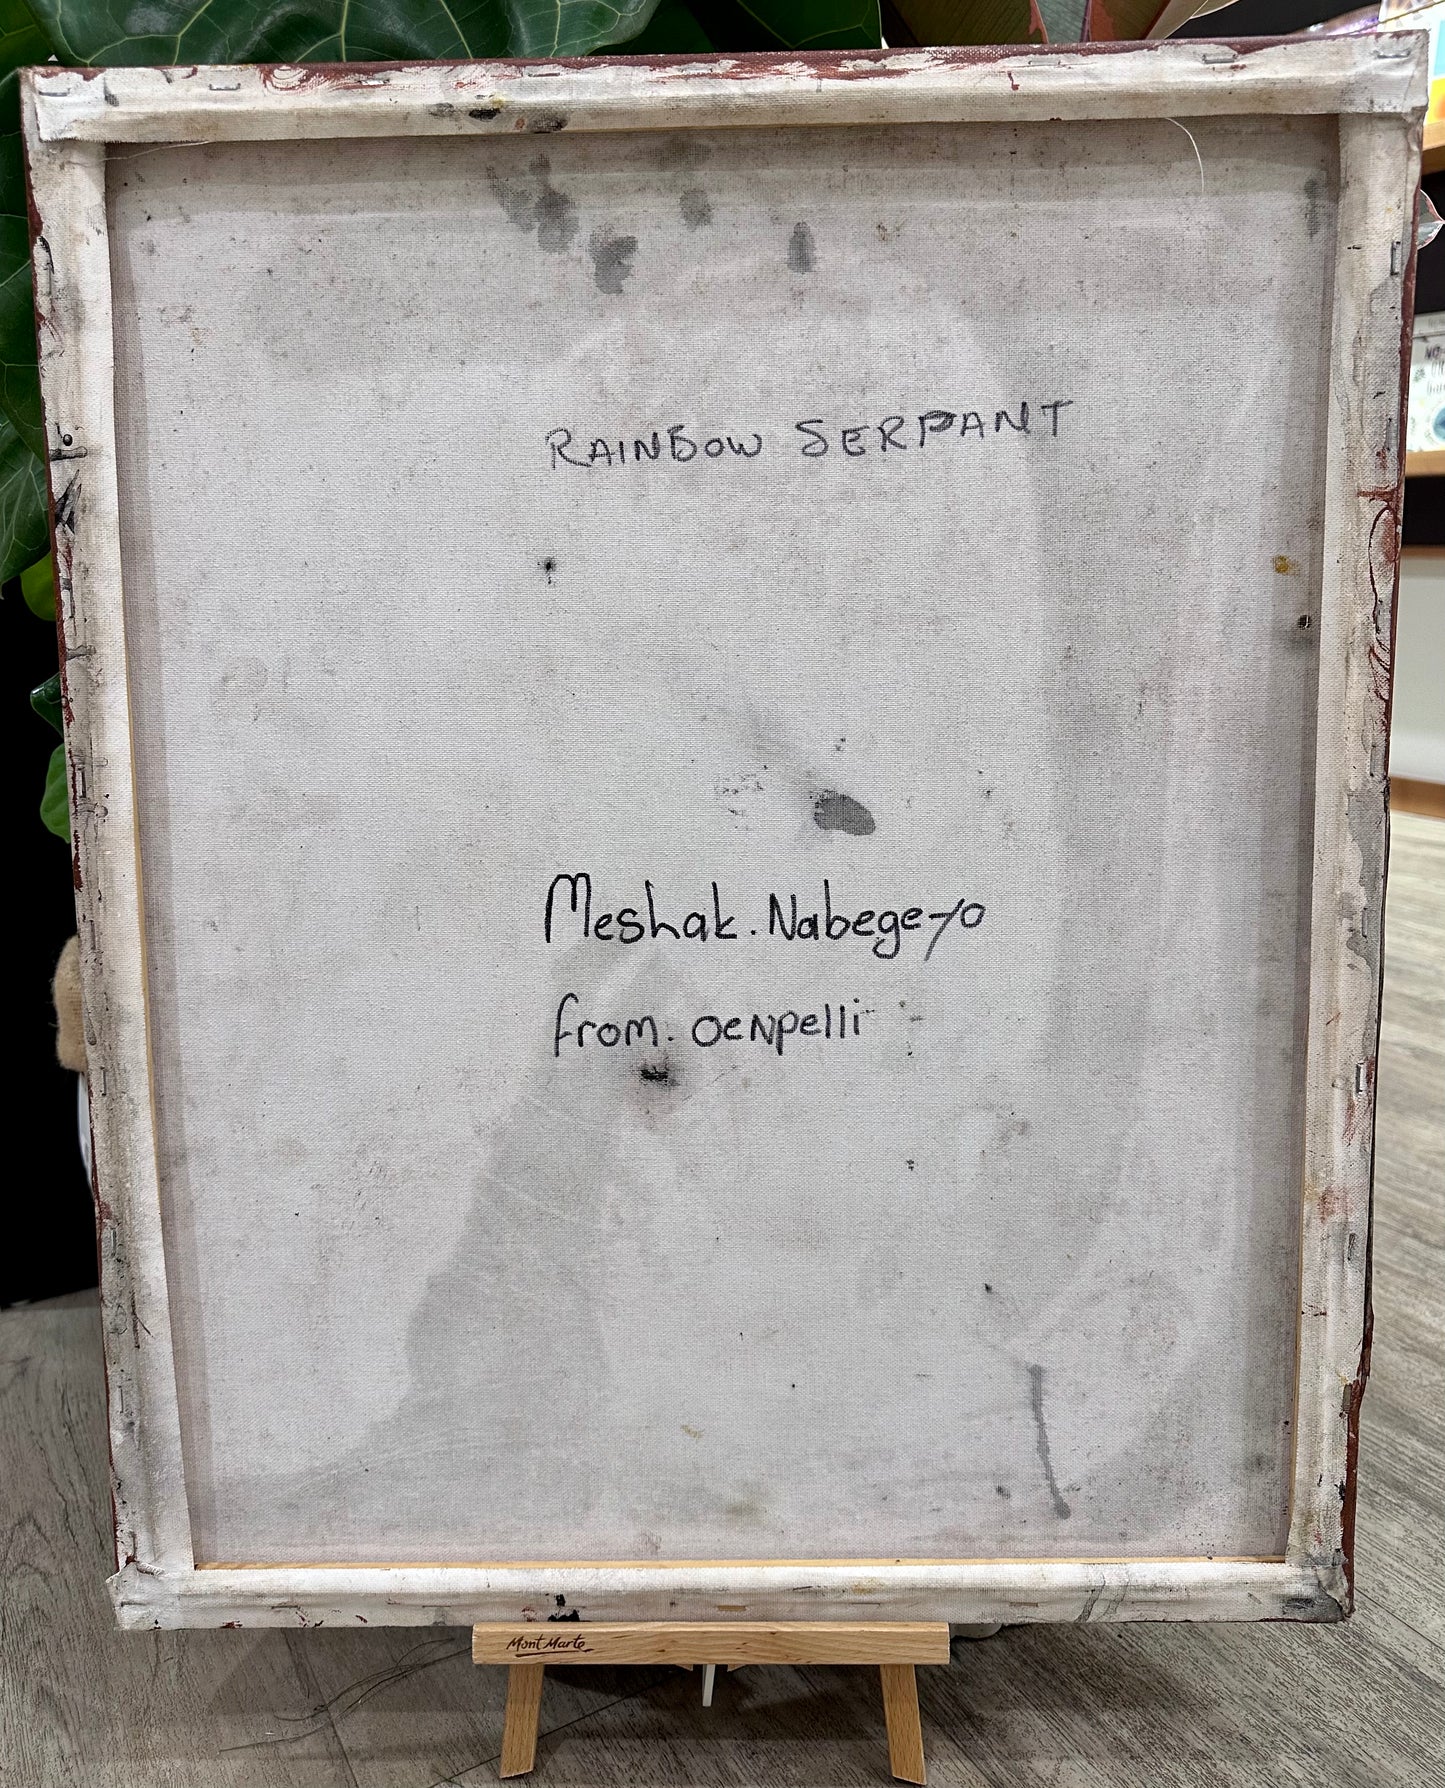 RAINBOW SERPANT
Meshak. Nabegeyo
from. oenpelli
Mont Marte